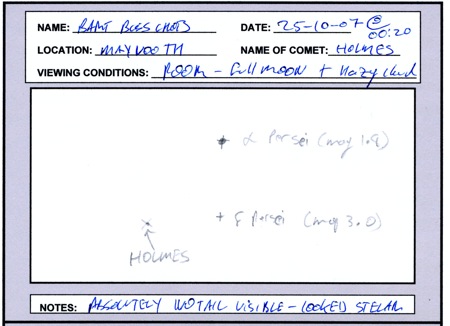 NAME: BART DATE: 25-10-07 @ 00:20
LOCATION: MAYNOOTH NAME OF COMET: HOLMES
VIEWING CONDITIONS: POOR - full moon + Hazy cloud
α Persei (mag 1.8)
Persei (mag 3.0)
HOLMES
NOTES: ABSOLUTELY NO TAIL VISIBLE - LOOKED STELLAR